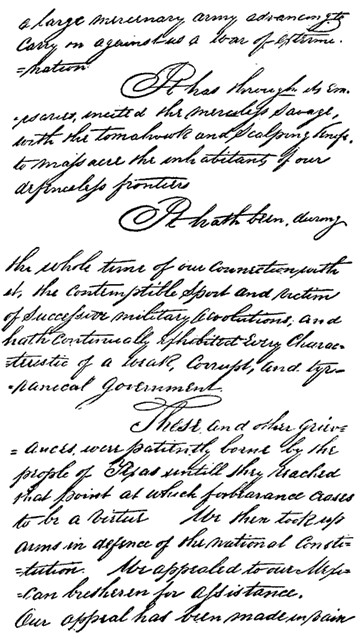 a large mercenary army advancing to
carry on against us a war of extermi-
=nation
It has through its em-
=issaries, incited the merciless Savage,
with the tomahawk and Scalping knife,
to massacre the inhabitants of our
defenceless frontiers
It hath been, during
the whole time of our connection with
it, the contemptible Sport and victim
of successive military Revolutions, and
hath continually exhibited every charac-
=teristic of a weak, corrupt, and tyr-
=ranical government.
These, and other griev=
=ances, were patiently borne by the
people of Texas untill they reached
that point at which forbearance ceases
to be a virtue We then took up
arms in defence of the national Consti-
=tution. We appealed to our Mexi-
=can bretheren for assistance.
Our appeal has been made in vain